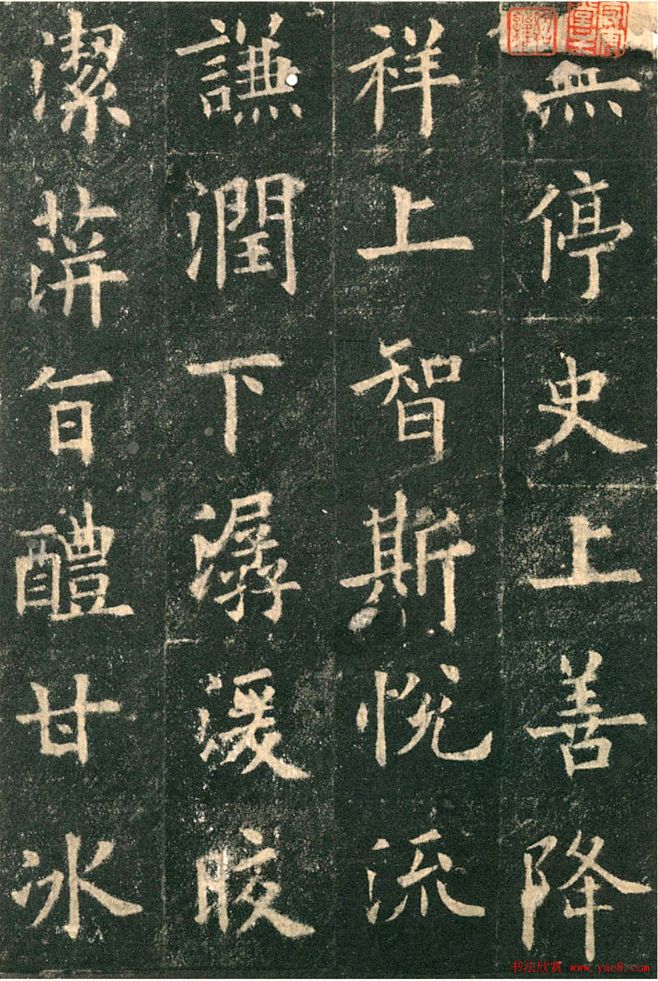 無停史上善降
祥上智斯悦流
謙潤下潺湲皎
潔蓱旨醴甘冰
书法欣赏 www.yac8.com